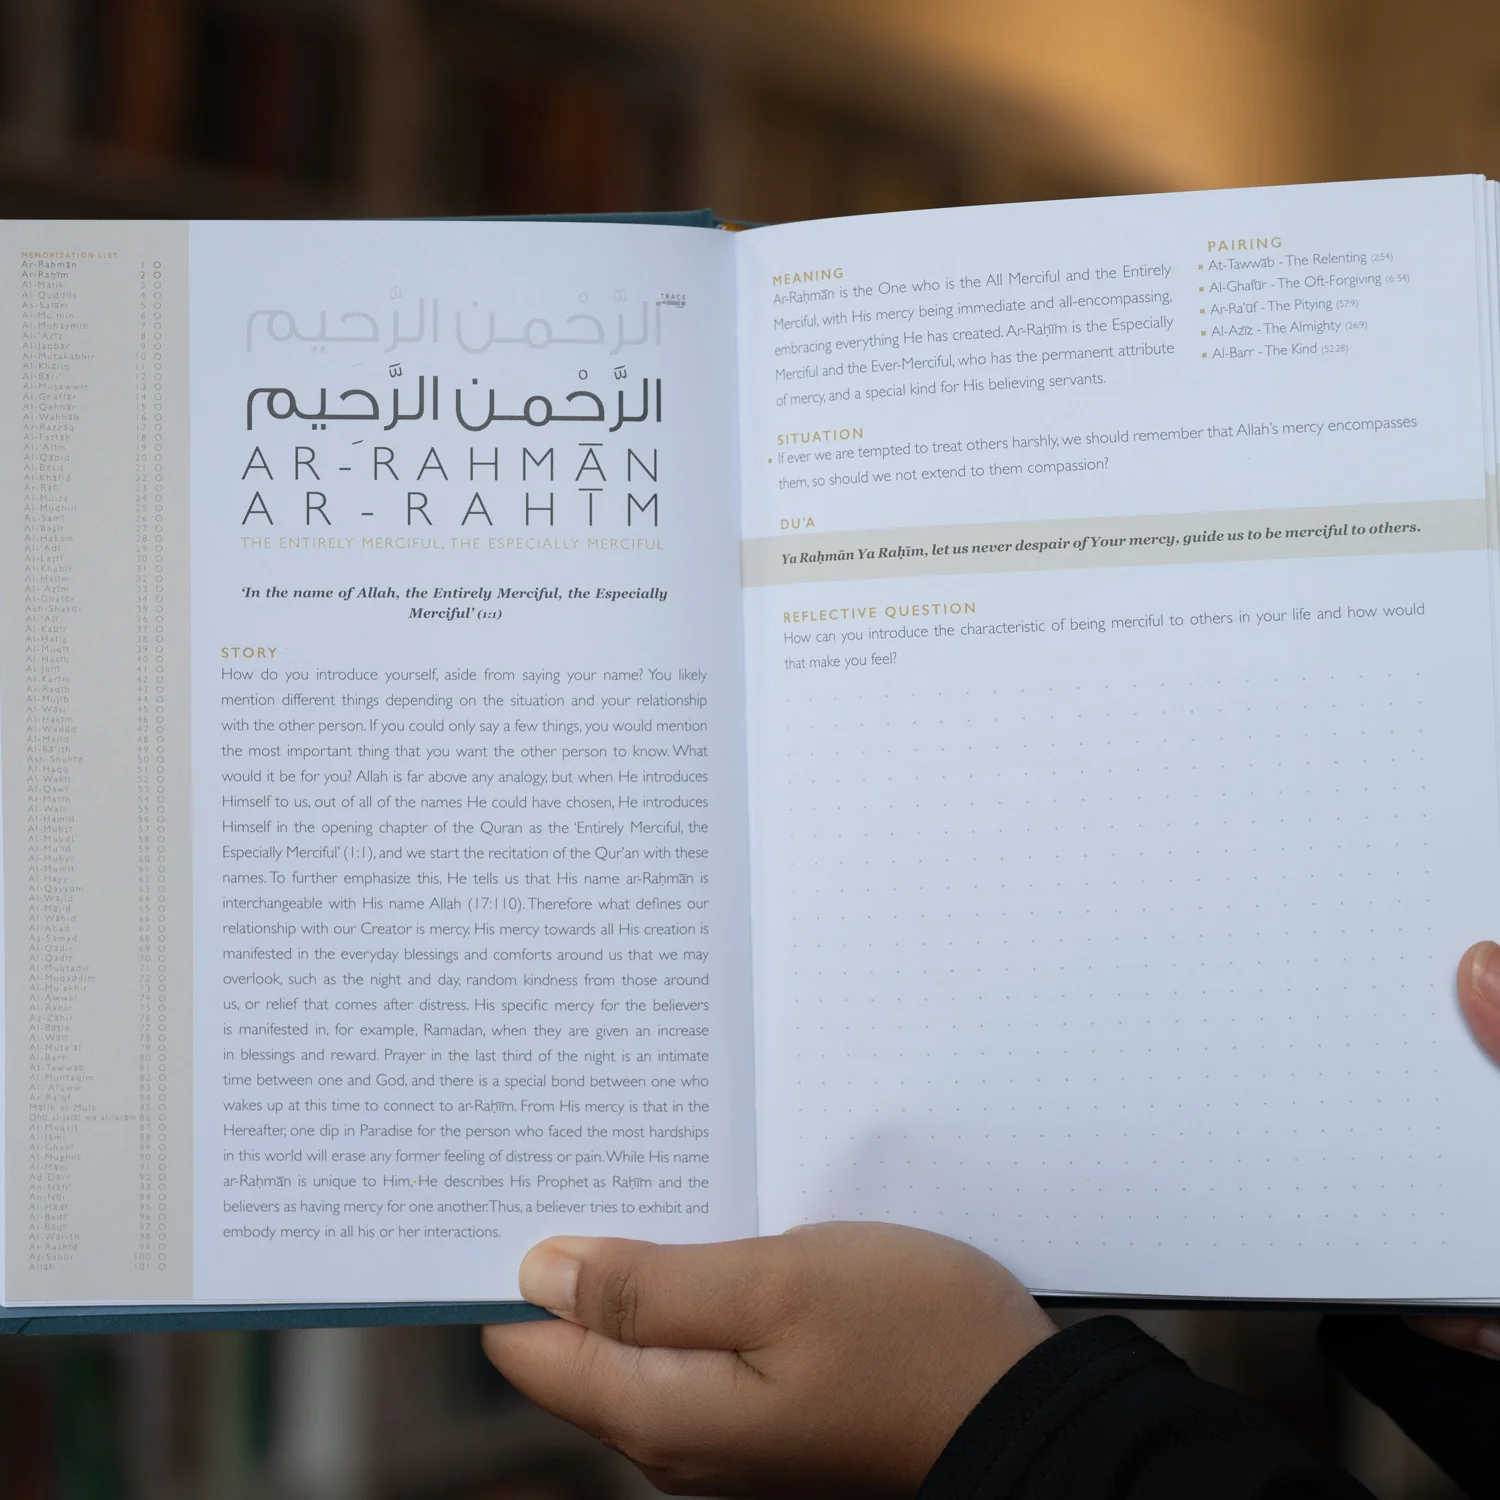 MEMORIZATION LIST
Ar-Raḥmān 1
Ar-Raḥīm 2
Al-Malik 3
Al-Quddūs 4
As-Salām 5
Al-Mu'min 6
Al-Muhaymin 7
Al-'Azīz 8
Al-Jabbār 9
Al-Mutakabbir 10
Al-Khāliq 11
Al-Bāri' 12
Al-Musawwir 13
Al-Ghaffār 14
Al-Qahhār 15
Al-Wahhāb 16
Ar-Razzāq 17
Al-Fattāḥ 18
Al-'Alīm 19
Al-Qābiḍ 20
Al-Bāsiṭ 21
Al-Khāfiḍ 22
Ar-Rāfi' 23
Al-Mu'izz 24
Al-Mudhill 25
As-Samī' 26
Al-Baṣīr 27
Al-Ḥakam 28
Al-'Adl 29
Al-Laṭīf 30
Al-Khabīr 31
Al-Ḥalīm 32
Al-'Aẓīm 33
Al-Ghafūr 34
Ash-Shakūr 35
Al-'Alī 36
Al-Kabīr 37
Al-Ḥafīẓ 38
Al-Muqīt 39
Al-Ḥasīb 40
Al-Jalīl 41
Al-Karīm 42
Ar-Raqīb 43
Al-Mujīb 44
Al-Wāsi' 45
Al-Ḥakīm 46
Al-Wadūd 47
Al-Majīd 48
Al-Bā'ith 49
Ash-Shahīd 50
Al-Ḥaqq 51
Al-Wakīl 52
Al-Qawī 53
Al-Matīn 54
Al-Walī 55
Al-Ḥamīd 56
Al-Muḥṣī 57
Al-Mubdi' 58
Al-Mu'īd 59
Al-Muḥyī 60
Al-Mumīt 61
Al-Ḥayy 62
Al-Qayyūm 63
Al-Wājid 64
Al-Mājid 65
Al-Wāḥid 66
Al-Aḥad 67
Aṣ-Ṣamad 68
Al-Qādir 69
Al-Qadīr 70
Al-Muqtadir 71
Al-Muqaddim 72
Al-Mu'akhir 73
Al-Awwal 74
Al-Ākhir 75
Aẓ-Ẓāhir 76
Al-Bāṭin 77
Al-Wālī 78
Al-Muta'āl 79
Al-Barr 80
At-Tawwāb 81
Al-Muntaqim 82
Al-'Afuww 83
Ar-Ra'ūf 84
Mālik al-Mulk 85
Dhū al-jalāl wa al-ikrām 86
Al-Muqsiṭ 87
Al-Jāmi' 88
Al-Ghanī 89
Al-Mughnī 90
Al-Māni' 91
Aḍ-Ḍārr 92
An-Nāfi' 93
An-Nūr 94
Al-Hādī 95
Al-Badī' 96
Al-Bāqī 97
Al-Wārith 98
Ar-Rashīd 99
Aṣ-Ṣabūr 100
Allāh 101
TRACE
الرَّحْمن الرَّحيم
الرَّحْمن الرَّحيم
AR-RAHMĀN
AR-RAHĪM
THE ENTIRELY MERCIFUL, THE ESPECIALLY MERCIFUL
'In the name of Allah, the Entirely Merciful, the Especially
Merciful' (1:1)
STORY
How do you introduce yourself, aside from saying your name? You likely
mention different things depending on the situation and your relationship
with the other person. If you could only say a few things, you would mention
the most important thing that you want the other person to know. What
would it be for you? Allah is far above any analogy, but when He introduces
Himself to us, out of all of the names He could have chosen, He introduces
Himself in the opening chapter of the Quran as the 'Entirely Merciful, the
Especially Merciful' (1:1), and we start the recitation of the Qur'an with these
names. To further emphasize this, He tells us that His name ar-Raḥmān is
interchangeable with His name Allah (17:110). Therefore what defines our
relationship with our Creator is mercy. His mercy towards all His creation is
manifested in the everyday blessings and comforts around us that we may
overlook, such as the night and day, random kindness from those around
us, or relief that comes after distress. His specific mercy for the believers
is manifested in, for example, Ramadan, when they are given an increase
in blessings and reward. Prayer in the last third of the night is an intimate
time between one and God, and there is a special bond between one who
wakes up at this time to connect to ar-Raḥīm. From His mercy is that in the
Hereafter, one dip in Paradise for the person who faced the most hardships
in this world will erase any former feeling of distress or pain. While His name
ar-Raḥmān is unique to Him, He describes His Prophet as Raḥīm and the
believers as having mercy for one another. Thus, a believer tries to exhibit and
embody mercy in all his or her interactions.
MEANING
Ar-Raḥmān is the One who is the All Merciful and the Entirely
Merciful, with His mercy being immediate and all-encompassing,
embracing everything He has created. Ar-Raḥīm is the Especially
Merciful and the Ever-Merciful, who has the permanent attribute
of mercy, and a special kind for His believing servants.
PAIRING
At-Tawwāb - The Relenting (2:54)
Al-Ghafūr - The Oft-Forgiving (6:54)
Ar-Ra'ūf - The Pitying (57:9)
Al-Azīz - The Almighty (26:9)
Al-Barr - The Kind (52:28)
SITUATION
If ever we are tempted to treat others harshly, we should remember that Allah's mercy encompasses
them, so should we not extend to them compassion?
DU'A
Ya Raḥmān Ya Raḥīm, let us never despair of Your mercy, guide us to be merciful to others.
REFLECTIVE QUESTION
How can you introduce the characteristic of being merciful to others in your life and how would
that make you feel?